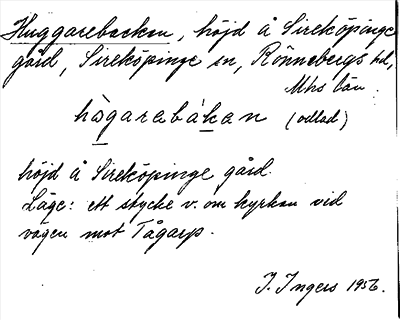 Huggarebacken, höjd å Sireköpinge
gård, Sireköpinge sn, Rönnebergs hd,
Mhs län.
hògarabákan (odlad)
höjd å Sireköpinge gård.
Läge: ett stycke v. om kyrkan vid
vägen mot Tågarp.
I. Ingers 1956.